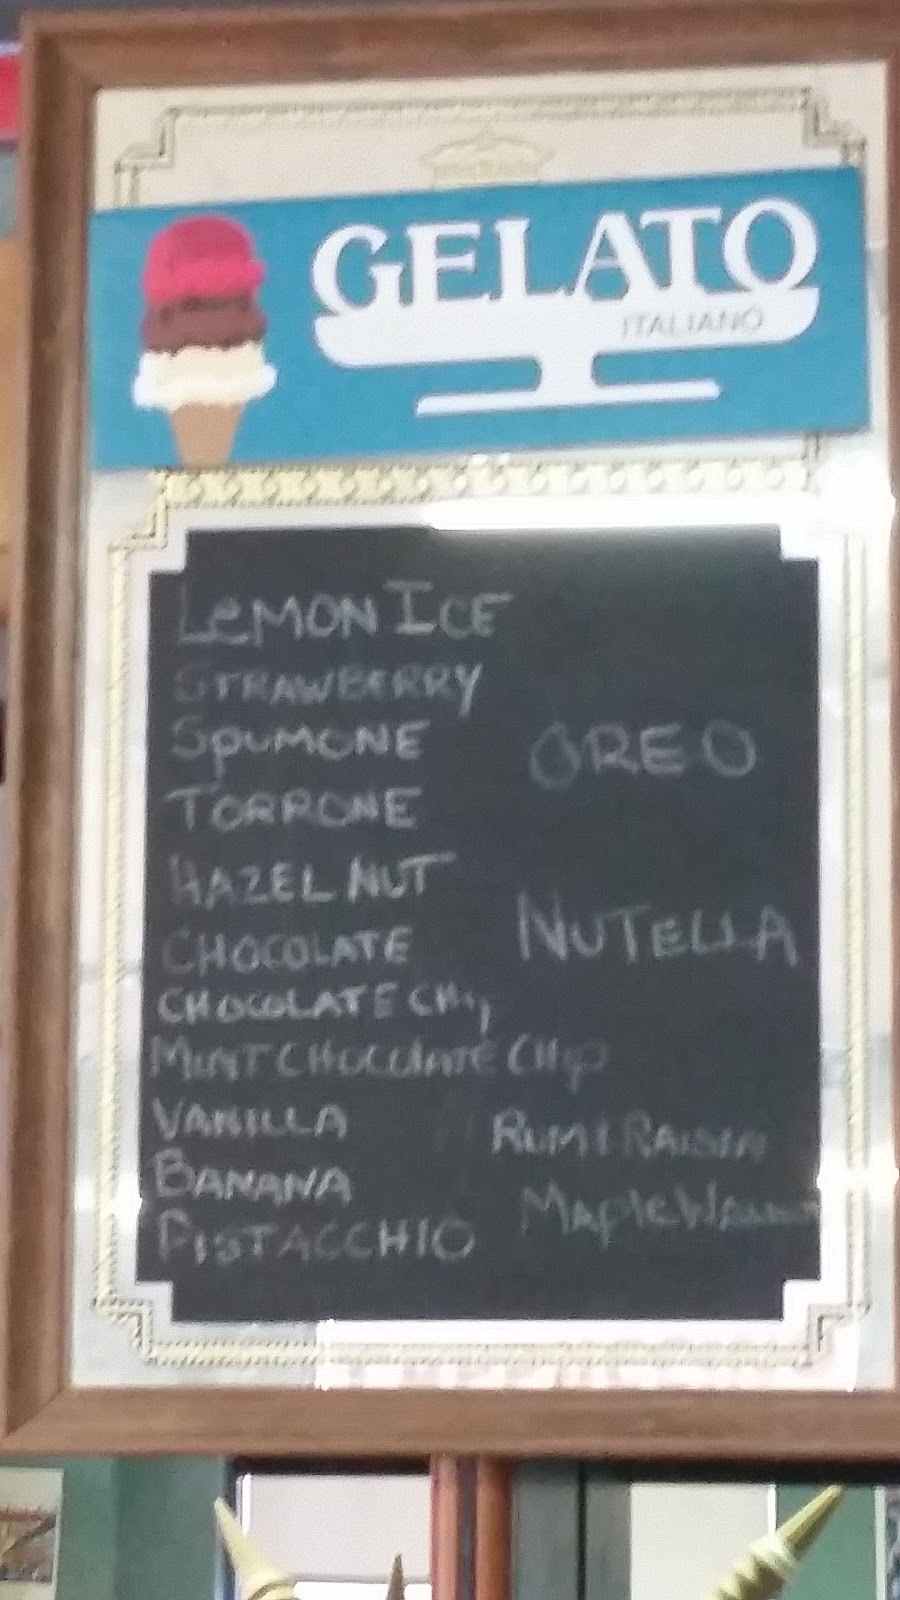 GELATO
ITALIANO
LEMON ICE
STRAWBERRY
SPUMONE
TORRONE
HAZEL NUT
CHOCOLATE
CHOCOLATE CHIP
MINT CHOCOLATE CHIP
VANILLA
BANANA
PISTACCHIO
OREO
NUTELLA
RUM & RAISIN
MAPLE WALNUT